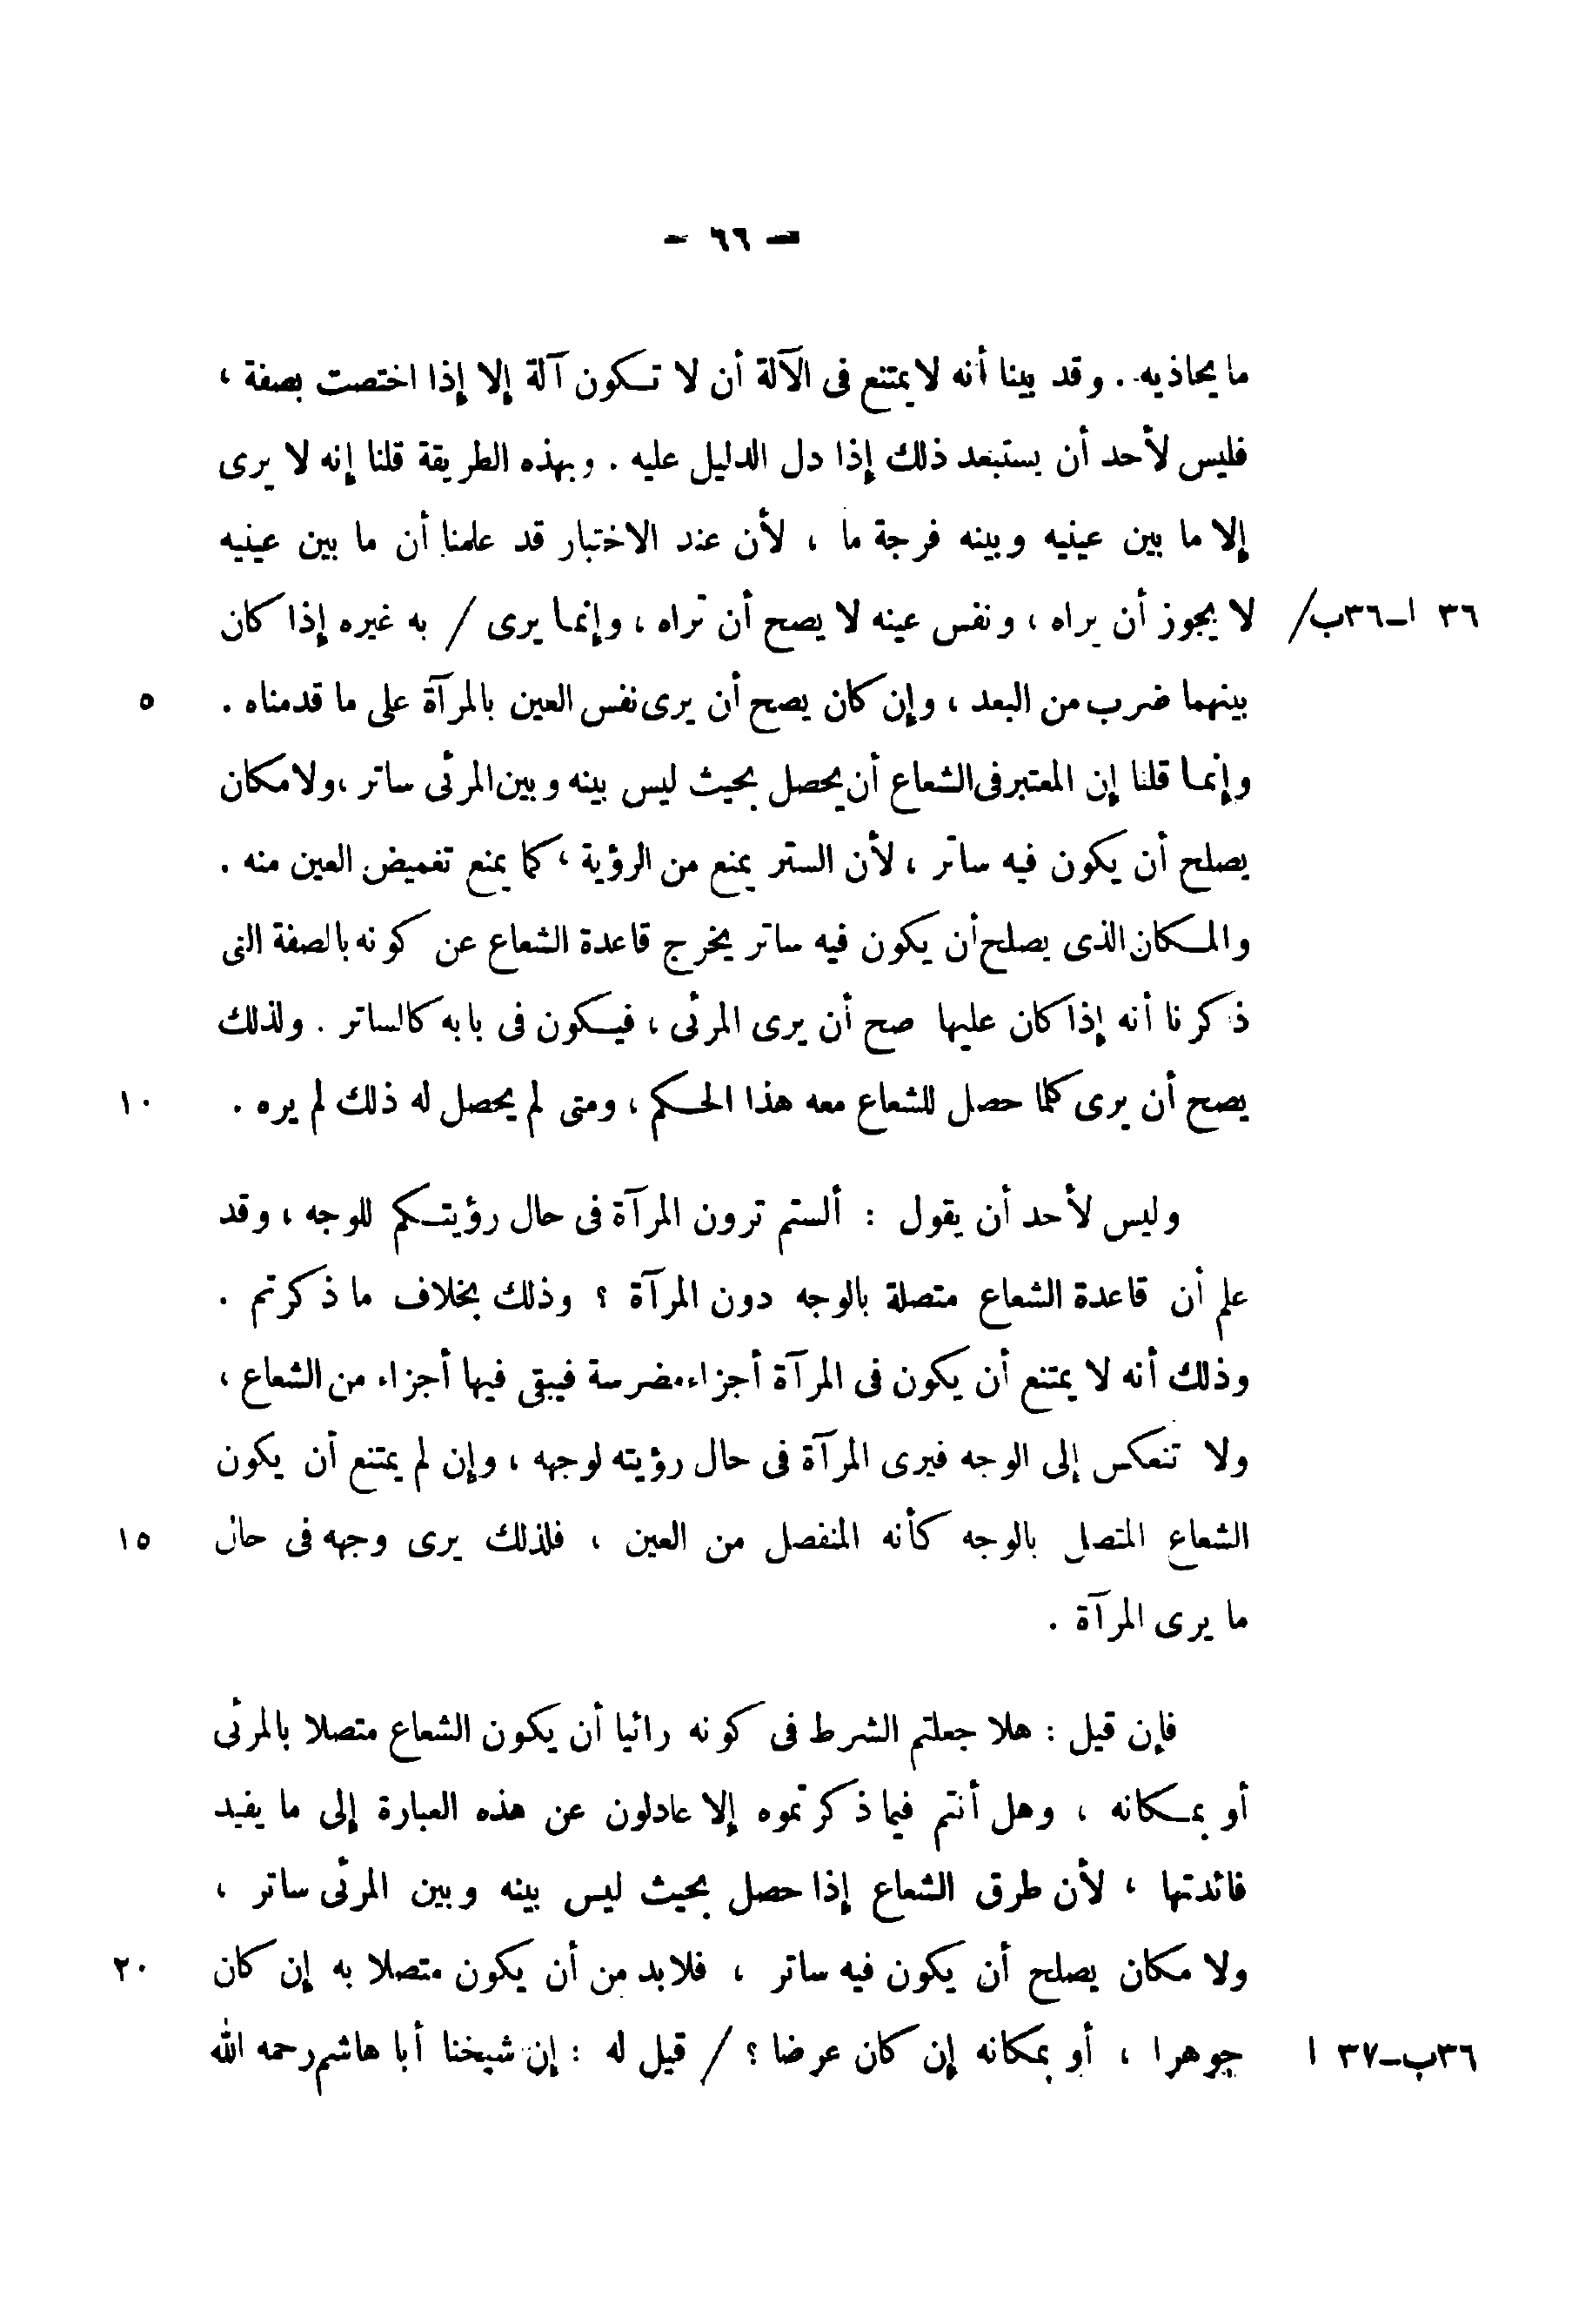 — ٦٦ —
ما يحاذيه . وقد بينا أنه لا يمتنع فى الآلة أن لا تكون آلة إلا إذا اختصت بصفة ،
فليس لأحد أن يستبعد ذلك إذا دل الدليل عليه . وبهذه الطريقة قلنا إنه لا يرى
إلا ما بين عينيه وبينه فرجة ما ، لأن عند الاختبار قد علمنا أن ما بين عينيه
٣٦ ا–٣٦ب/ لا يجوز أن يراه ، ونفس عينه لا يصح أن تراه ، وإنما يرى / به غيره إذا كان
بينهما ضرب من البعد ، وإن كان يصح أن يرى نفس العين بالمرآة على ما قدمناه . ٥
وإنما قلنا إن المعتبر فى الشعاع أن يحصل بحيث ليس بينه وبين المرئى ساتر ، ولا مكان
يصلح أن يكون فيه ساتر ، لأن الستر يمنع من الرؤية ، كما يمنع تغميض العين منه .
والمكان الذى يصلح أن يكون فيه ساتر يخرج قاعدة الشعاع عن كونه بالصفة التى
ذكرنا أنه إذا كان عليها صح أن يرى المرئى ، فيكون فى بابه كالساتر . ولذلك
يصح أن يرى كلما حصل للشعاع معه هذا الحكم ، ومتى لم يحصل له ذلك لم يره . ١٠
وليس لأحد أن يقول : ألستم ترون المرآة فى حال رؤيتكم للوجه ، وقد
علم أن قاعدة الشعاع متصلة بالوجه دون المرآة ؟ وذلك بخلاف ما ذكرتم .
وذلك أنه لا يمتنع أن يكون فى المرآة أجزاء مضرسة فيبقى فيها أجزاء من الشعاع ،
ولا تنعكس إلى الوجه فيرى المرآة فى حال رؤيته لوجهه ، وإن لم يمتنع أن يكون
الشعاع المتصل بالوجه كأنه المنفصل من العين ، فلذلك يرى وجهه فى حال ١٥
ما يرى المرآة .
فإن قيل : هلا جعلتم الشرط فى كونه رائيا أن يكون الشعاع متصلا بالمرئى
أو بمكانه ، وهل أنتم فيما ذكرتموه إلا عادلون عن هذه العبارة إلى ما يفيد
فائدتها ، لأن طرق الشعاع إذا حصل بحيث ليس بينه وبين المرئى ساتر ،
ولا مكان يصلح أن يكون فيه ساتر ، فلابد من أن يكون متصلا به إن كان ٢٠
٣٦ب–٣٧ ا جوهرا ، أو بمكانه إن كان عرضا ؟ / قيل له : إن شيخنا أبا هاشم رحمه الله